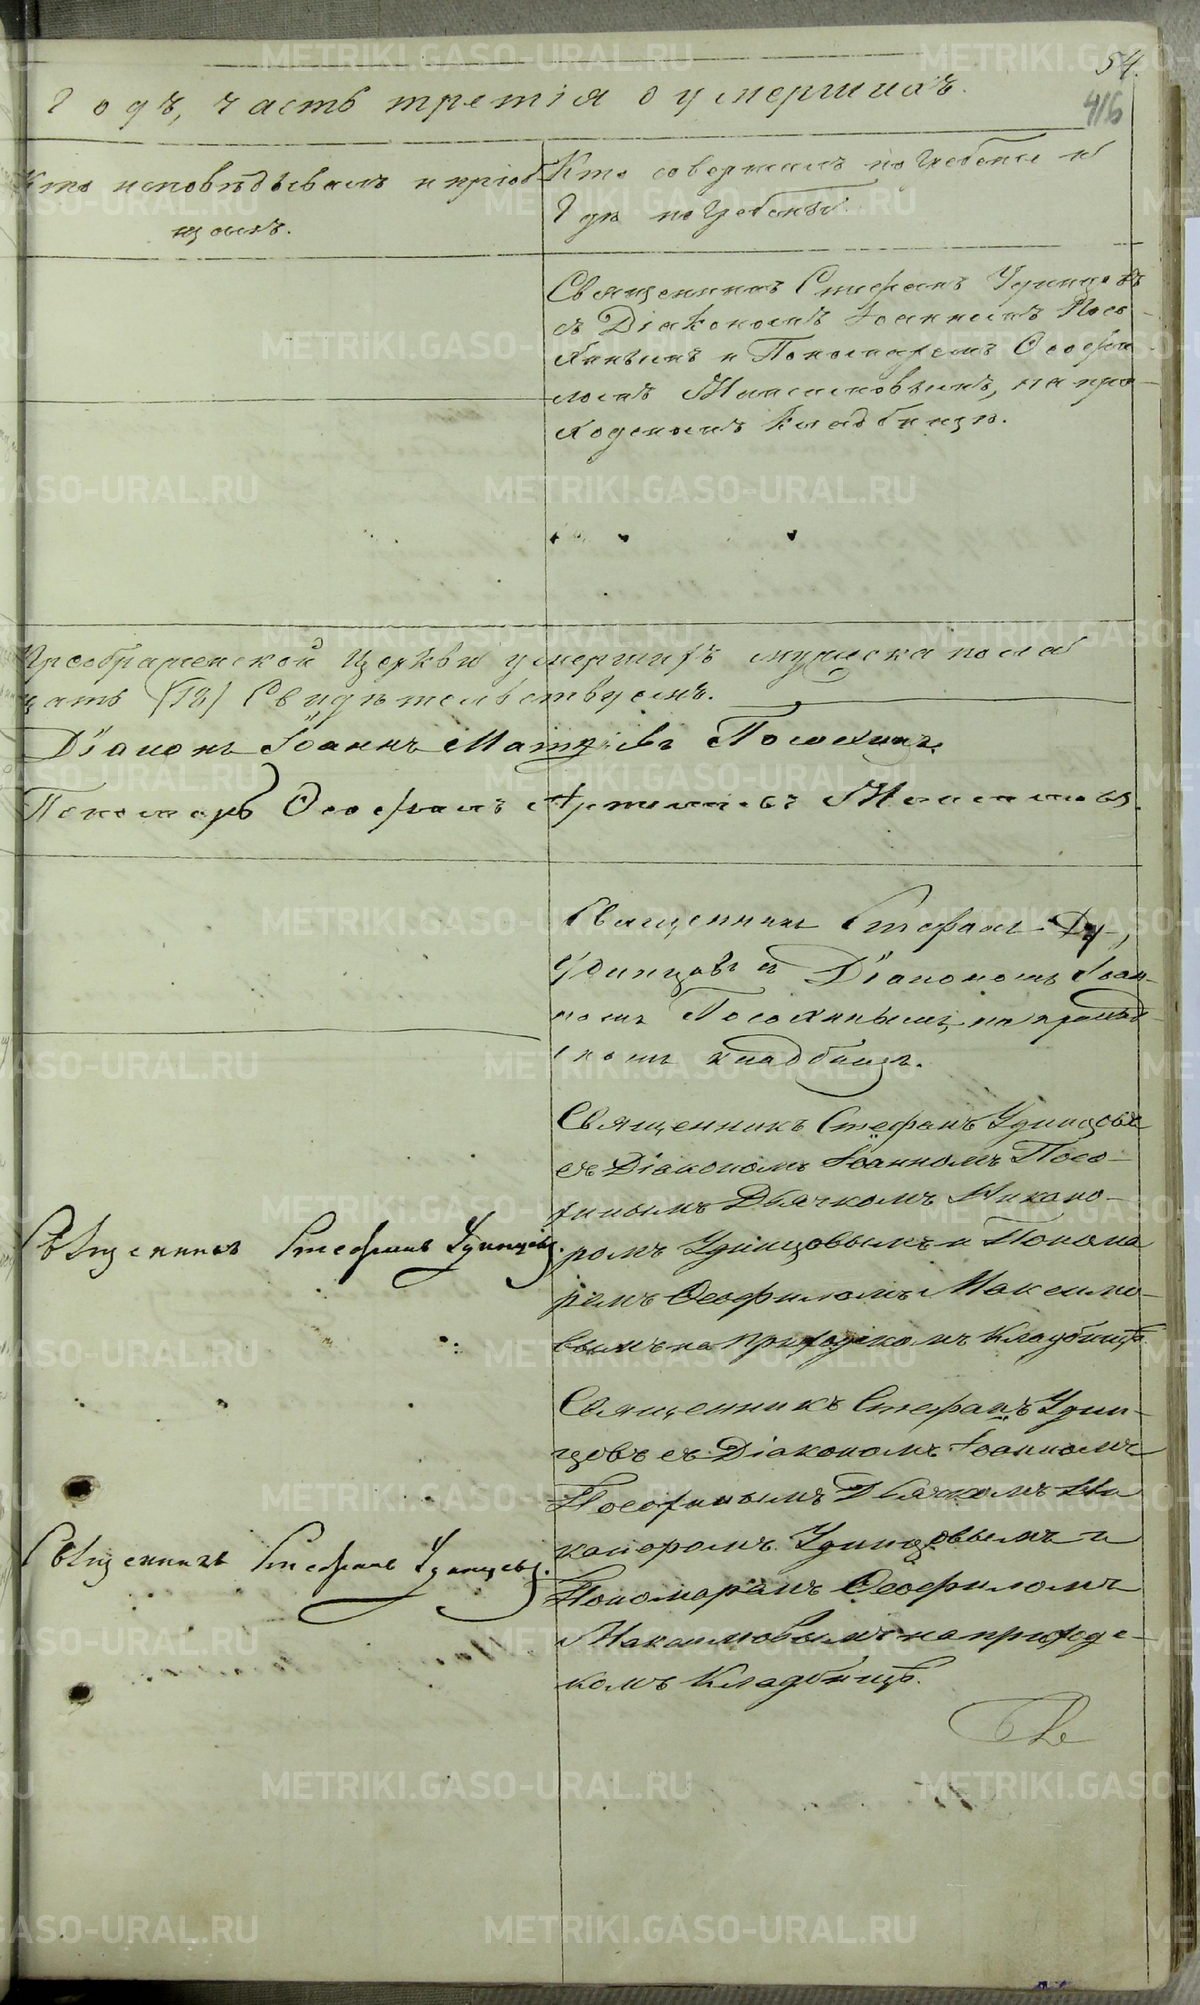 54.
416
Годъ, часть третія о умершихъ.
Кто исповѣдывалъ и пріоб
щалъ.
Кто совершалъ погребеніе и
Гдѣ погребены.
Священникъ Стефанъ Удинцовъ
съ Діакономъ Іоанномъ Посо
хинымъ и Пономаремъ Ѳеофи
ломъ Максимовымъ, на при
ходскомъ кладбищѣ.
Преображенской Церкви умершихъ мужеска пола
цать (13) Свидѣтельствуемъ.
Діаконъ Іоаннъ Матѳіевъ Посохинъ.
Пономарь Ѳеофилъ Артемьевъ Максимовъ.
Священникъ Стефанъ
Удинцовъ съ Діакономъ Іоан-
номъ Посохинымъ, на приход
скомъ кладбищѣ.
Священникъ Стефанъ Удинцовъ
съ Діакономъ Іоанномъ Посо-
хинымъ Дьячкомъ Никано-
ромъ Удинцовымъ и Понома
ремъ Ѳеофиломъ Максимо-
вымъ на приходскомъ Кладбищѣ.
Священникъ Стефанъ Удинцовъ.
Священникъ Стефанъ Удин-
цовъ съ Діакономъ Іоанномъ
Посохинымъ Дьячкомъ Ни
каноромъ Удинцовымъ и
Пономаремъ Ѳеофиломъ
Максимовымъ на приходс-
комъ Кладбищѣ.
Священникъ Стефанъ Удинцовъ.
METRIKI.GASO-URAL.RU